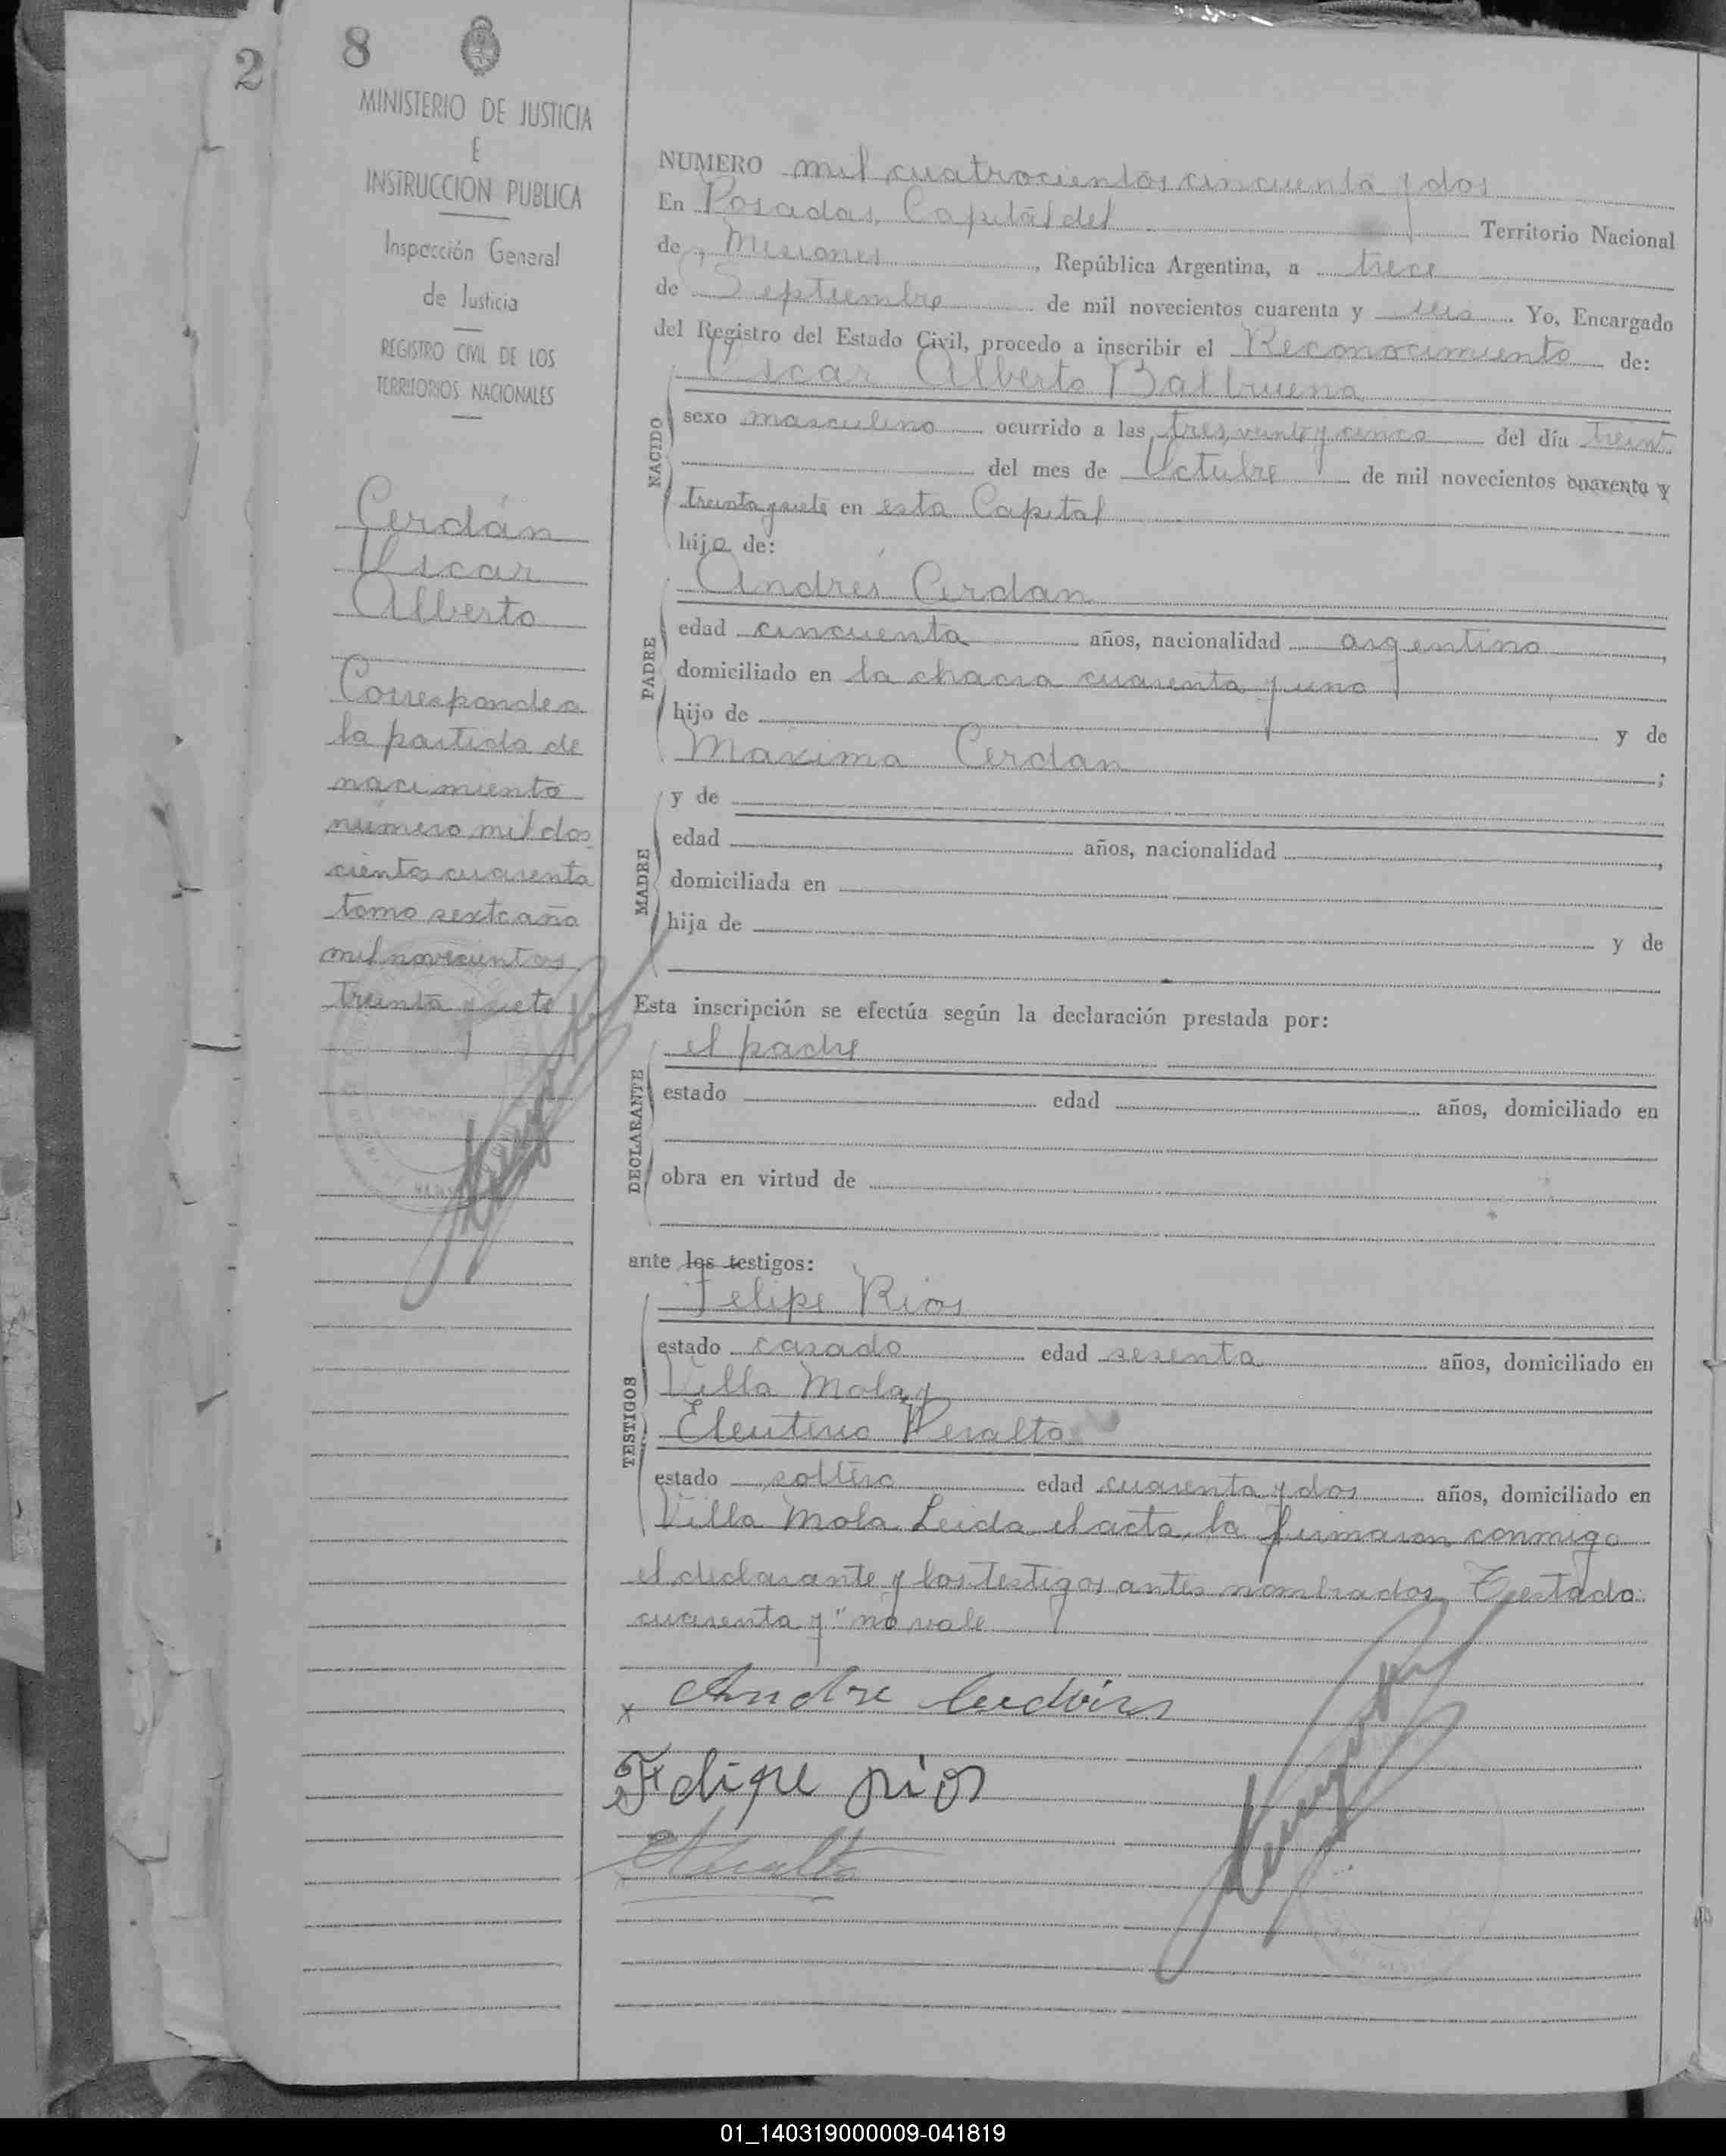 2
8
MINISTERIO DE JUSTICIA
E
INSTRUCCION PUBLICA
Inspección General
de Justicia
REGISTRO CIVIL DE LOS
TERRITORIOS NACIONALES
Cerdán
Oscar
Alberto
Corresponde a
la partida de
nacimiento
número mil dos
cientos cuarenta
tomo sexto año
mil novecientos
treinta y siete
NUMERO mil cuatrocientos cincuenta y dos
En Posadas, Capital del Territorio Nacional
de, Misiones, República Argentina, a trece
de Septiembre de mil novecientos cuarenta y seis. Yo, Encargado
del Registro del Estado Civil, procedo a inscribir el Reconocimiento de:
Oscar Alberto Balbuena
NACIDO
sexo masculino ocurrido a las tres, veinte y cinco del día treint.
del mes de Octubre de mil novecientos cuarenta y
treinta y siete en esta Capital
hijo de:
Andrés Cerdan
PADRE
edad cincuenta años, nacionalidad argentino,
domiciliado en la chacra cuarenta y uno
hijo de y de
Maxima Cerdan;
MADRE
y de
edad años, nacionalidad,
domiciliada en
hija de y de
Esta inscripción se efectúa según la declaración prestada por:
el padre
DECLARANTE
estado edad años, domiciliado en
obra en virtud de
ante los testigos:
Felipe Rios
TESTIGOS
estado casado edad sesenta años, domiciliado en
Villa Mola y
Eleuterio Peralta
estado soltero edad cuarenta y dos años, domiciliado en
Villa Mola. Leida el acta, la firmaron conmigo
el declarante y los testigos antes nombrados. Testado:
cuarenta y" no vale
x Andre
Felipe rios
EPeralta
01_140319000009-041819